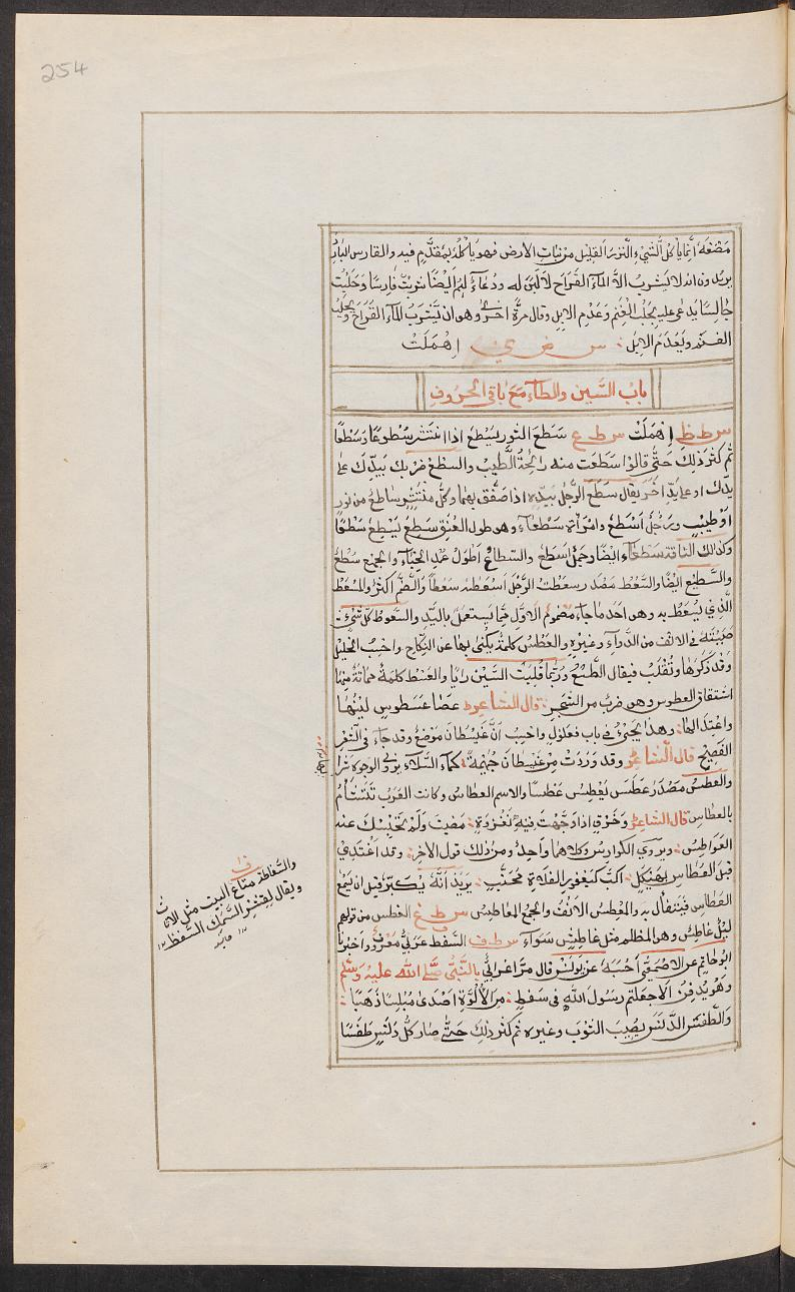 254
مَضغَه انّما ياكل الشئ والنَّزرُ القليل من نبات الارض فهو ياكله بمقدَّم فيه والقارس اللبن
يريدون انه لا يشرب الّا الماء القراح لا لَبَن له ودعاءٌ لهم ايضًا شربتَ قارسًا وحَلَبت
جالسًا يُدعى عليه بحلب الغنم وعَدْم الابل وقال مرّة اخرى وهو ان تشرب الماء القراح ويحلب
الغنم ويعدم الابل : س ض ي اهملت
باب السّين والطاء مَعَ باقى الحروف
س ط ظ اهملت س ط ع سَطع النور يسطع اذا انتشر سطوعًا وسَطعًا
ثم كثر ذلك حتّى قالوا سَطَعَت منه رائحةُ الطيب والسطع ضربك بيدك على
يدك او على يدٍ اخر يقال سَطَع الرَّجل بيديه اذا صَفّق بهما وكل منتشرٍ ساطع من نور
او طيبٍ ورجلٌ اَسْطَع وامراة سَطعاء وهو طول العُنق سَطِعَ يَسْطَع سَطَعًا
وكذلك الناقة سَطعاء ايضًا وجمل اسطع والسطاع اطول عمد الخباء والجمع سُطُع
والسَّطيع ايضًا والسَّعْط مصدر سعطت الرَّجل اسعطه سعطًا والضّم اكثر والمُسْعُط
الّذى يُسعَط به وهو احد ما جاء مضموم الاول مما يستعمل باليد والسعوط كل شئ
صَبَبتَه فى الانف من الدواء وغيرِه والعَطْس كلمة يكنى بها عن النّكاح واحسب الخليل
وقد ذكرها وتُقلَب فيقال الطَّسْع وربَّما قُلبت السّين زايًا والعَسْط كلمة مماتة منها
اشتقاق العطوس وهو ضرب من الشّجر : قال الشاعر عصَا عَسَّطوسٍ لينُها
واعتدالها : وهذا يجئُ فى باب فعلول واحسب انَّ عَسْطان موضع وقد جاء فى الشعر
الفصيح قال الشاعر وقد وردت من عَسْطان
والعطس مصدر عَطَس يَعْطِس عَطسًا والاسم العطاس وكانت العرب تتشأم
بالعطاس قال الشاعر وخَرق اذا وجّهت فيه لغزوة : مضيت ولم تحبسك عنه
العَوَاطِس : ويروى الكوادس وكلاهما واحد ومن ذلك قول الاخر : وقد اغتدى
قبل العُطاس بهيكل : اقبّ كيعفور الفلاة محنّب : يريد انّه يبكّر قبل ان يسمع
العطاس فيتفأل به والمعطس الانف والجمع المعاطس س ط غ الغطس من قولهم
ليلٌ غاطس وهو المظلم مثل غاطش سَواء س ط ف السَّفط عربىٌّ معروف اخبرنا
ابوحاتم عن الاصمعى احسبه عن يونس قال مرّ اعرابىٌّ بالنّبىّ صلّى الله عليه وسلّم
وهو يدفن الا جعلتم رسول الله فى سفطٍ : من الألوّة اصدى ملبسًا ذهبًا :
والطَّفَس الدَّنَس يصيب الثوب وغيره ثم كثر ذلك حتّى صار كلُّ دنسٍ طفَسًا
والسَّفاطة متاع البيت مثل الاثاث
ويقال لقشر السَّمك السَّفط ١٢